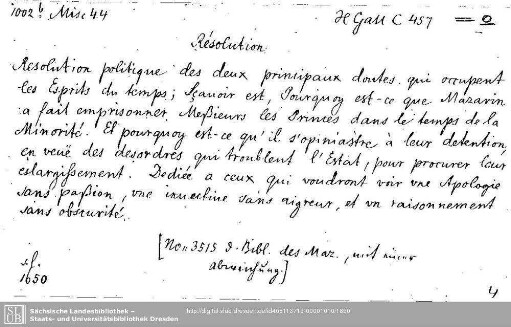 1002 b Misc 44
H Gall C 457 = 0
Résolution
Resolution politique des deux principaux doutes qui occupent
les Esprits du temps; Sçauoir est, Pourquoy est-ce que Mazarin
a fait emprisonner Meßieurs les Princes dans le temps de la
Minorité. Et pourquoy est-ce qu'il s'opiniastre à leur detention,
en veuë des desordres qui troublent l'Estat, pour procurer leur
eslargißement. Dediée a ceux qui voudront voir vne Apologie
sans paßion, vne inuectiue sans aigreur, et vn raisonnement
sans obscurité.
[No. 3515 d. Bibl. des Maz., mit einer
Abweichung]
s.l.
1650
4
Sächsische Landesbibliothek –
Staats- und Universitätsbibliothek Dresden